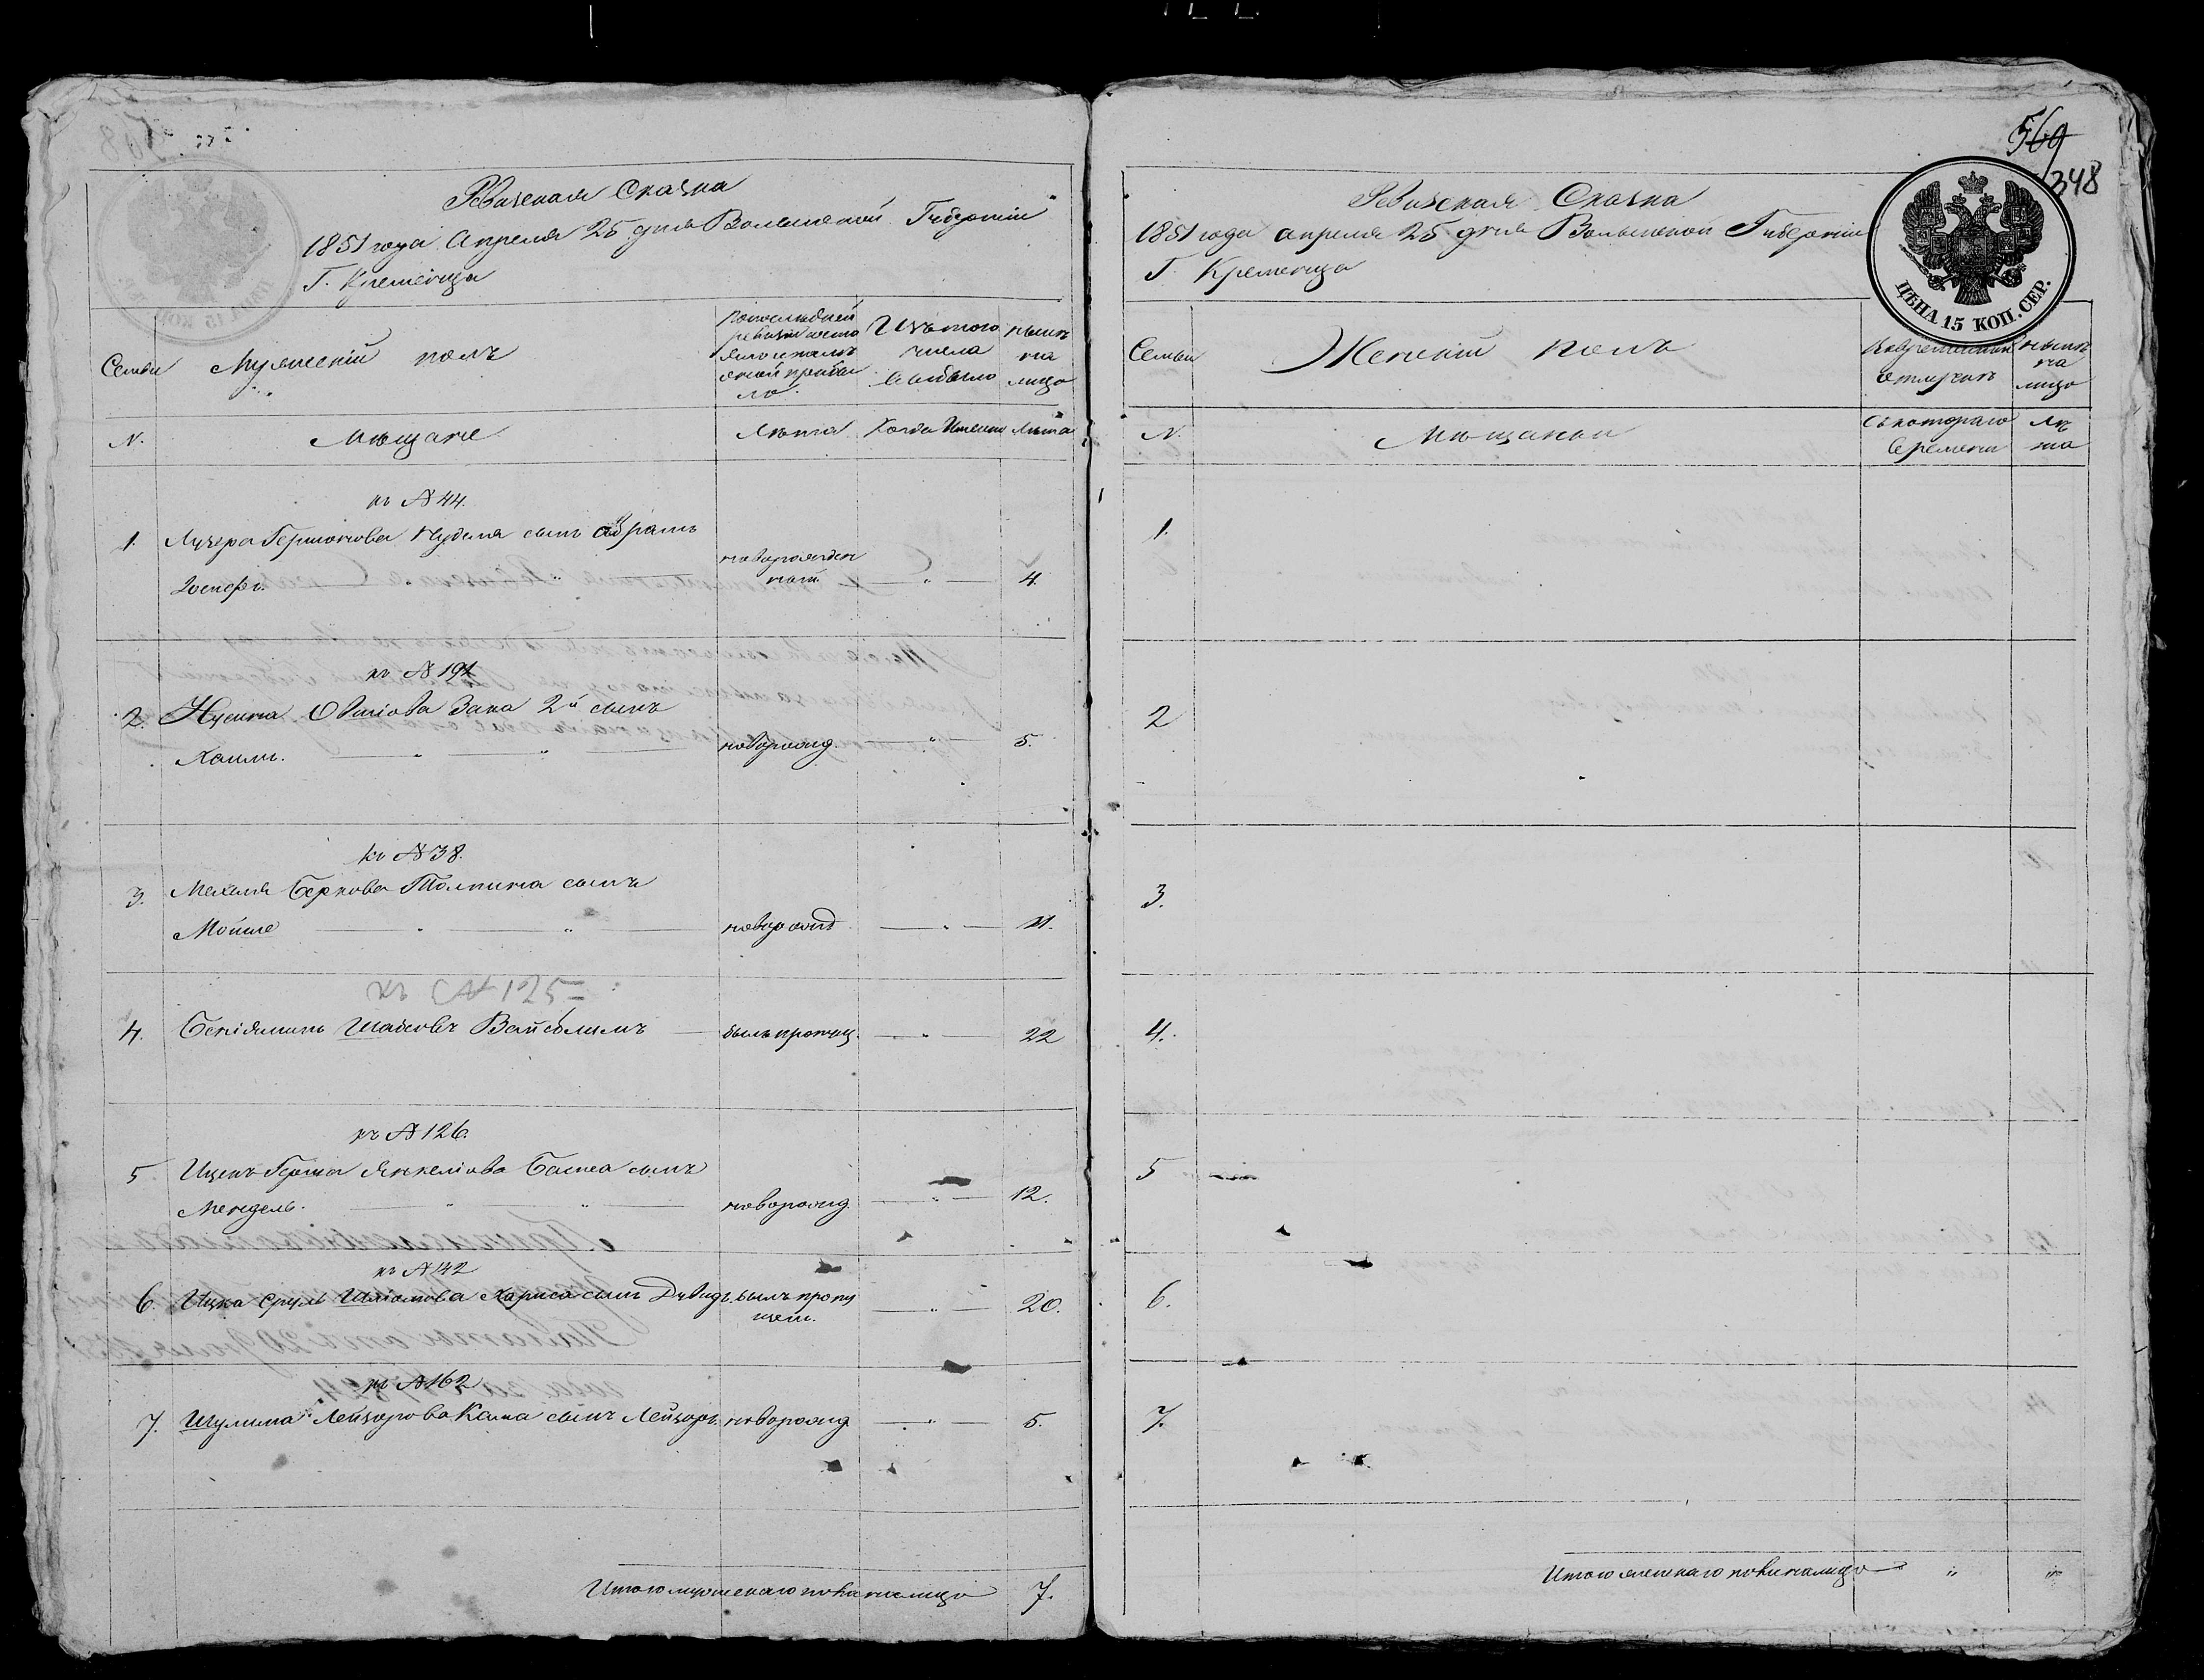 Ревизская Сказка
1851 года Апреля 25 дня Волынской Губернии
Г. Кременца
Семьи
Мужеский полъ
По последней ревизіи состояло и после оной прибыло
Изъ того числа выбыло
ныне на лицо
N.
Мещане
Лѣта
Когда Именно
Лета
къ N 44.
1. Лузера Гершонова Нуделя сынъ Абрамъ
Іосифъ. новорожденный " 4.
къ N 191
2. Нусина Овшіова Зака 2й сынъ
Хаимъ. новорожд. " 5.
къ N 38.
3. Мехеля Беркова Толпина сынъ
Мойше новорожд " 11.
къ N 125
4. Беніяминъ Шаевъ Вайсблымъ былъ пропущ. " 22
къ N 126.
5 Ицекъ Герша Янкеліова Баси сынъ
Мендель. новорожд. " 12.
къ N 142
6. Ицка Сруль Шліомова Хариса сынъ Дувидъ. былъ пропущен. " 20.
къ N 162
7. Шулима Лейзорова Каца сынъ Лейзоръ. новорожд " 5.
Итого мужескаго пола на лицо 7.
569
348
Ревизская Сказка
1851 года апреля 25 дня Волынской Губерніи
Г. Кременца
ЦѢНА 15 КОП. СЕР.
Семьи
Женскій полъ
Во временной отлучке
ныне на лицо
N.
Мещанки
Съ котораго времени
Лета
1.
2
3.
4.
5
6.
7.
Итого женскаго пола на лицо " "